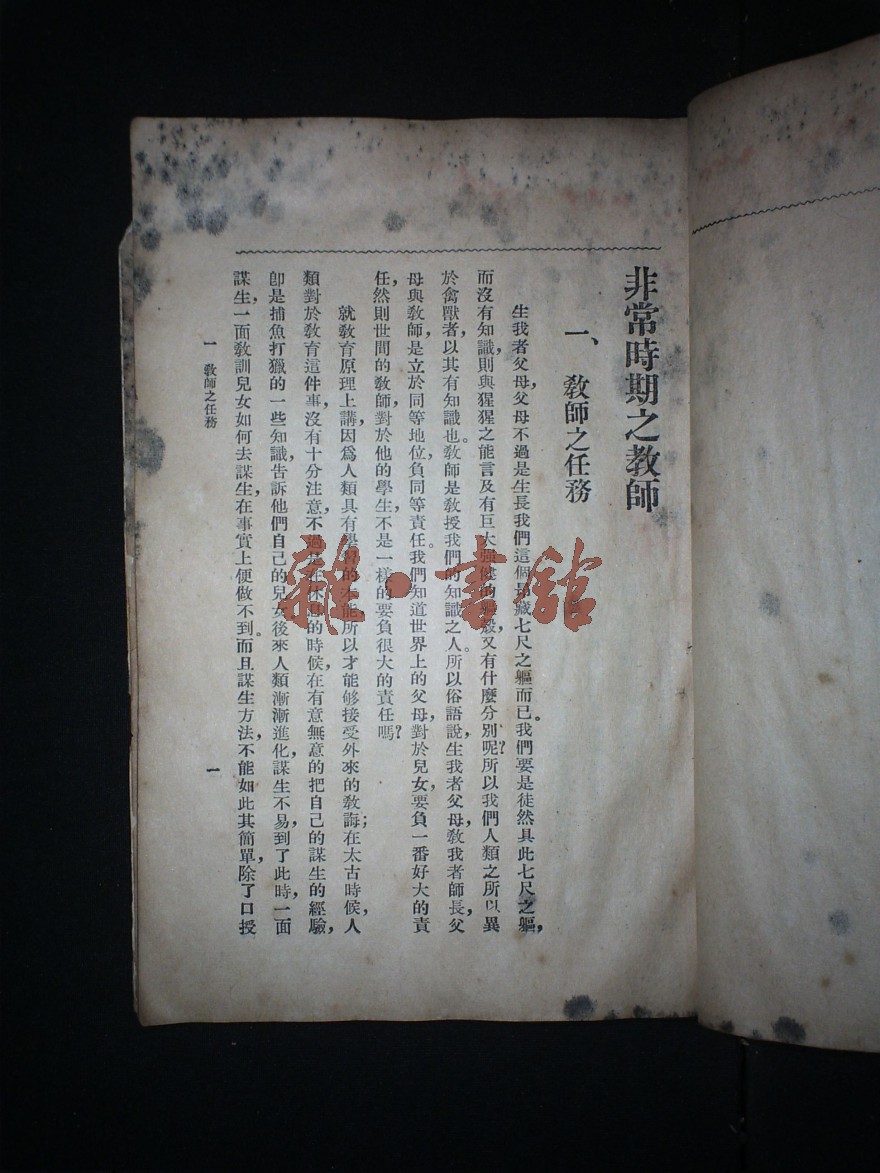 非常時期之教師
一、教師之任務
生我者父母，父母不過是生長我們這個昂藏七尺之軀而已。我們要是徒然具此七尺之軀，
而沒有知識，則與猩猩之能言及有巨大強健的軀殼又有什麼分別呢？所以我們人類之所以異
於禽獸者，以其有知識也。教師是教授我們的知識之人。所以俗語說，生我者父母，教我者師長，父
母與教師，是立於同等地位，負同等責任。我們知道世界上的父母，對於兒女，要負一番好大的責
任，然則世間的教師，對於他的學生，不是一樣的要負很大的責任嗎？
就教育原理上講，因爲人類具有學習的本能，所以才能够接受外來的教誨；在太古時候，人
類對於教育這件事，沒有十分注意，不過是在休息的時候，在有意無意的把自己的謀生的經驗，
卽是捕魚打獵的一些知識，告訴他們自己的兒女，後來人類漸漸進化，謀生不易，到了此時，一面
謀生，一面教訓兒女如何去謀生，在事實上便做不到。而且謀生方法，不能如此其簡單，除了口授
一 教師之任務
一
雜·書館